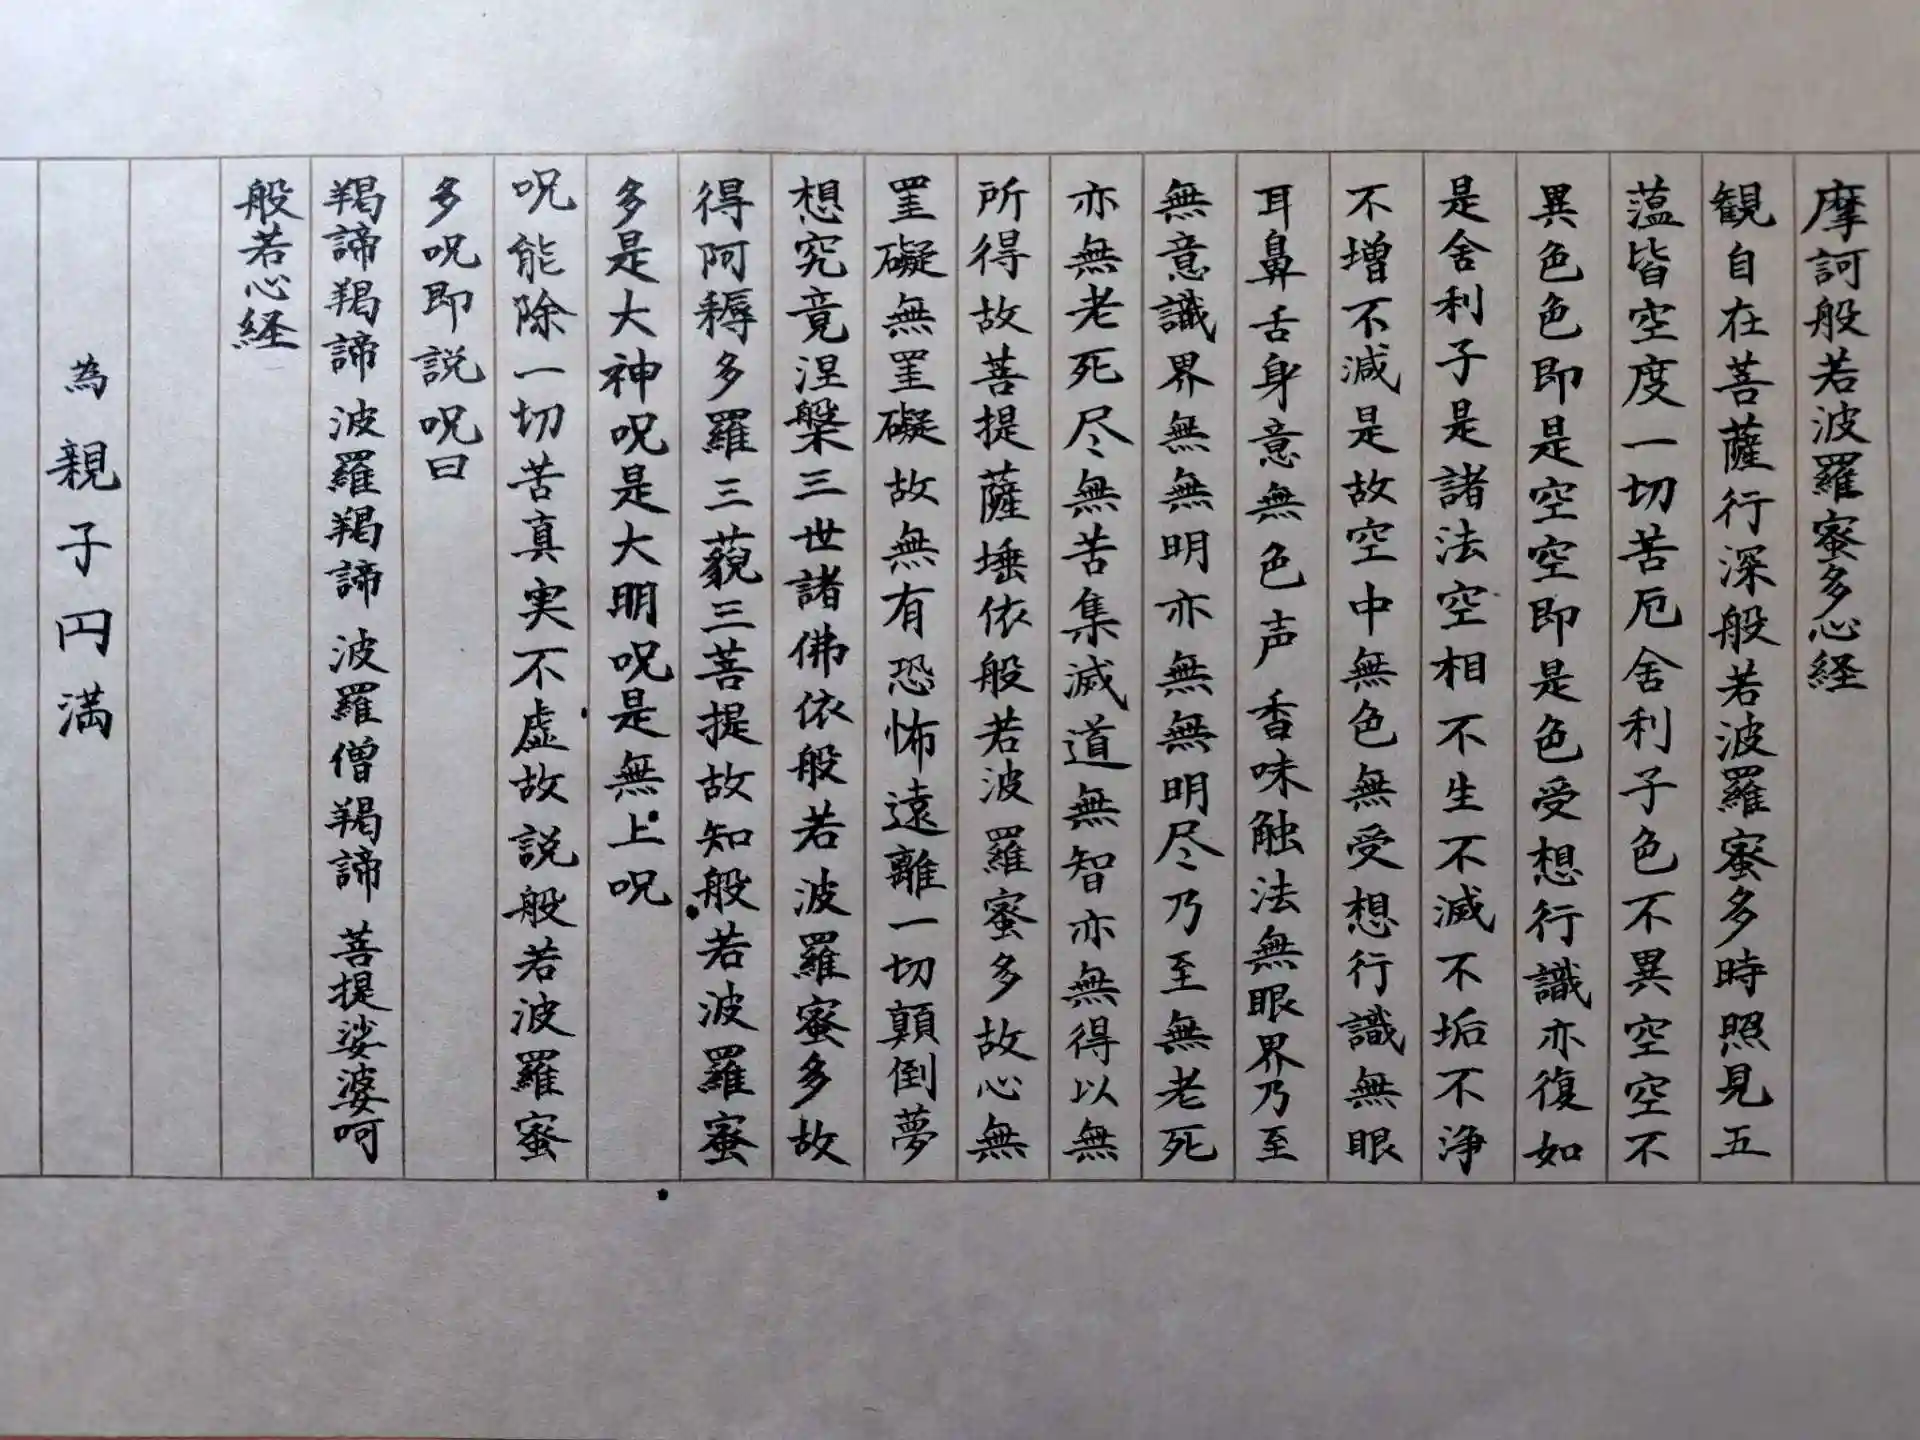 摩訶般若波羅蜜多心経
観自在菩薩行深般若波羅蜜多時照見五
蕰皆空度一切苦厄舍利子色不異空空不
異色色即是空空即是色受想行識亦復如
是舍利子是諸法空相不生不滅不垢不浄
不増不減是故空中無色無受想行識無眼
耳鼻舌身意無色声香味触法無眼界乃至
無意識界無無明亦無無明尽乃至無老死
亦無老死尽無苦集滅道無智亦無得以無
所得故菩提薩埵依般若波羅蜜多故心無
罣礙無罣礙故無有恐怖遠離一切顛倒夢
想究竟涅槃三世諸佛依般若波羅蜜多故
得阿耨多羅三藐三菩提故知般若波羅蜜
多是大神呪是大明呪是無上呪
呪能除一切苦真実不虚故説般若波羅蜜
多呪即説呪曰
羯諦羯諦波羅羯諦波羅僧羯諦菩提娑婆呵
般若心経
為親子円満